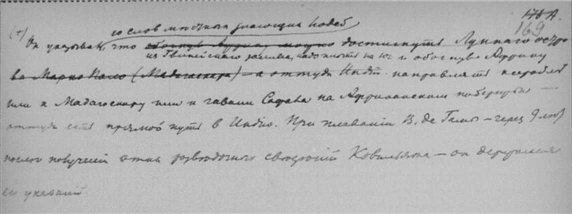 178 А.
169
со слов многих знающих людей
(+) Он указывал, что обогнув Африку можно достигнуть Луннаго остро
из Гвинейского залива, надо плыть на юг и обогнув Африку
ва Марко Поло (Мадагаскара) – а оттуда Индіи. направлять корабль
или к Мадагаскару или к гавани Софала на Африканском побережье —
оттуда есть прямой путь в Индію. При плаваніи В. де Гамы – через 9 лет
после полученія этих сведеній Ковильяна – он держался
его указаній